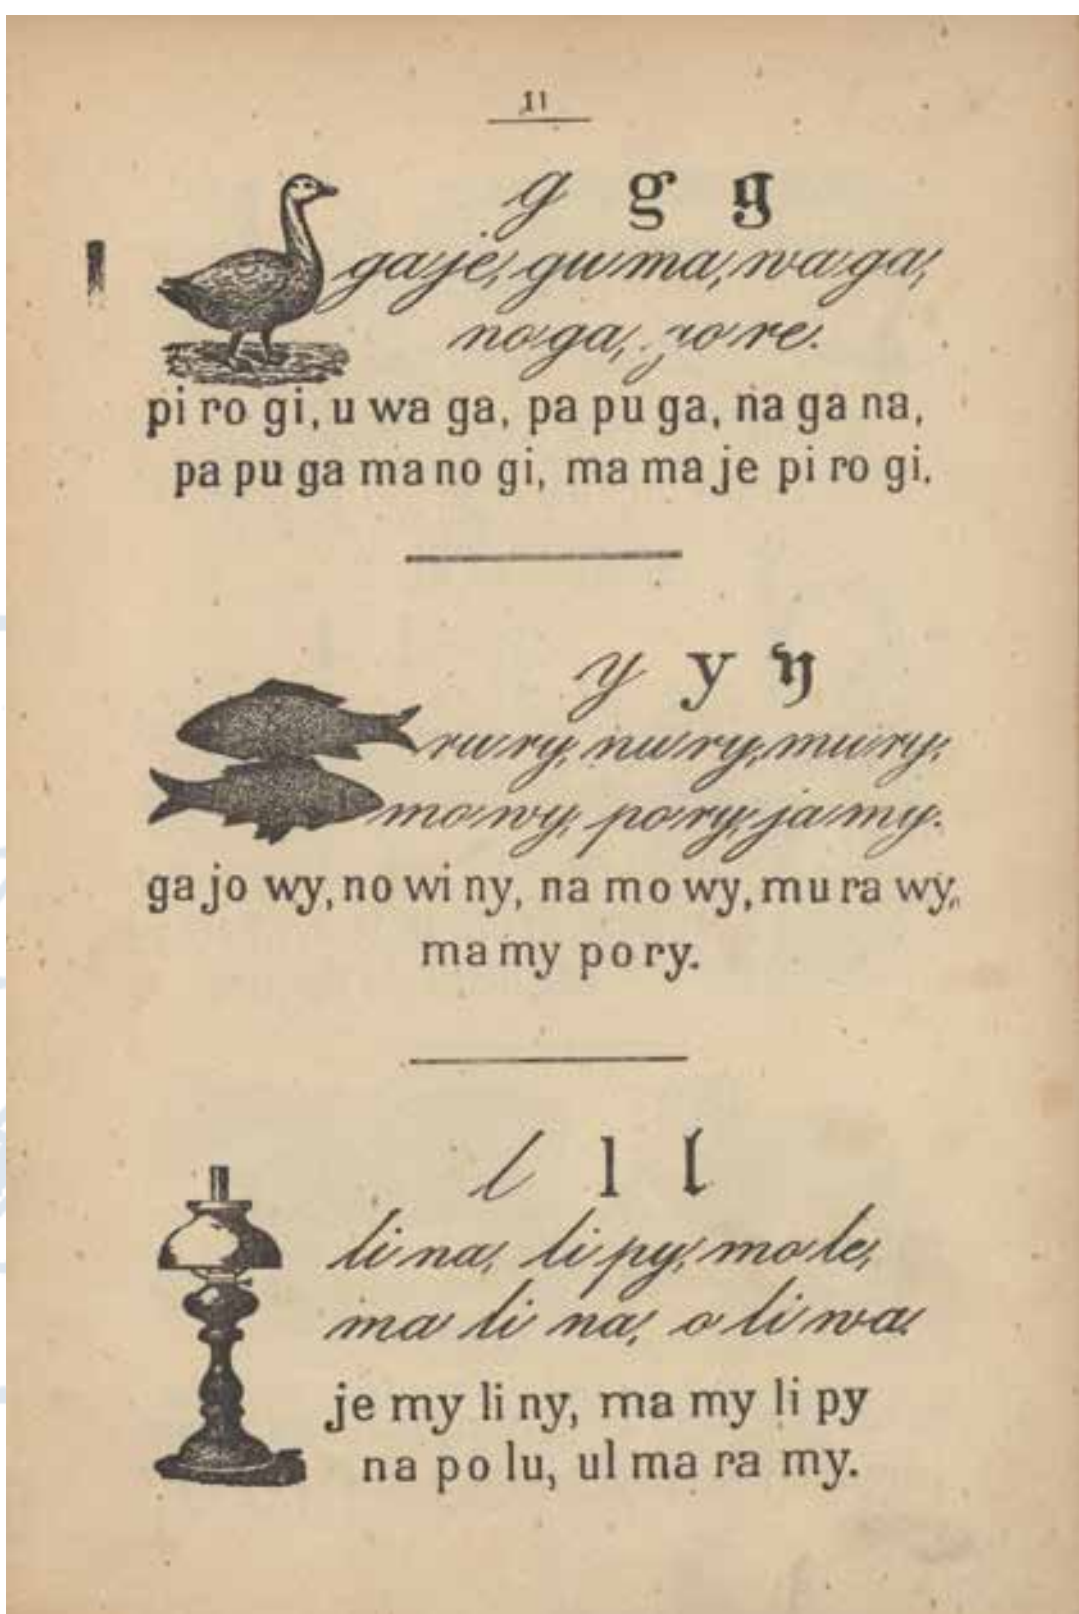 11
g g g
ga je, gu ma, wa ga,
no ga, go re.
pi ro gi, u wa ga, pa pu ga, na ga na,
pa pu ga ma no gi, ma ma je pi ro gi.
y y y
ru ry, nu ry, mu ry,
mo wy, po ry, ja my.
ga jo wy, no wi ny, na mo wy, mu ra wy,
ma my po ry.
l l l
li na, li py, mo le,
ma li na, o li wa.
je my li ny, ma my li py
na po lu, ul ma ra my.